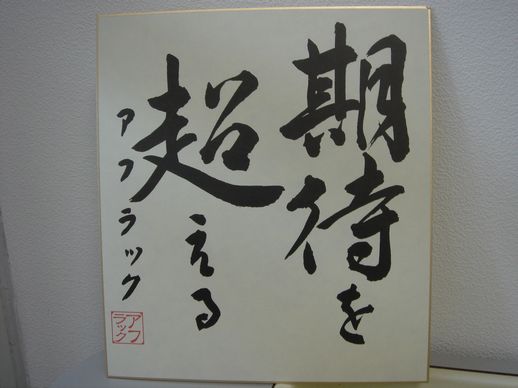 期待を
超える
アフラック
アフ
ラック